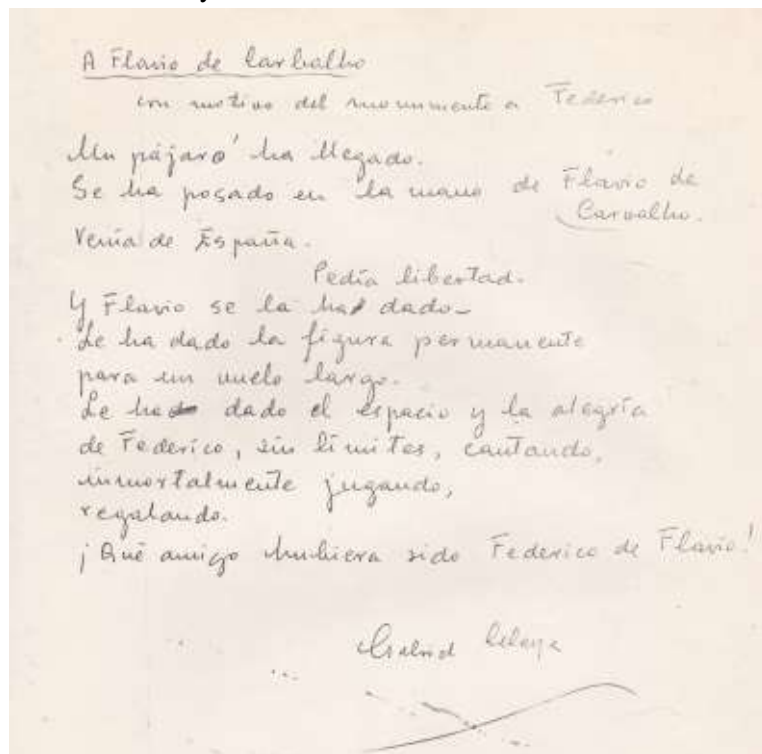 A Flavio de Carbalho
con motivo del monumento a Federico
Un pájaro ha llegado.
Se ha posado en la mano de Flavio de
Carvalho.
Venía de España.
Pedía libertad.
Y Flavio se la ha dado.
Le ha dado la figura permanente
para un vuelo largo.
Le ha dado el espacio y la alegría
de Federico, sin límites, cantando,
inmortalmente jugando,
regalando.
¡Qué amigo hubiera sido Federico de Flavio!
Celaya